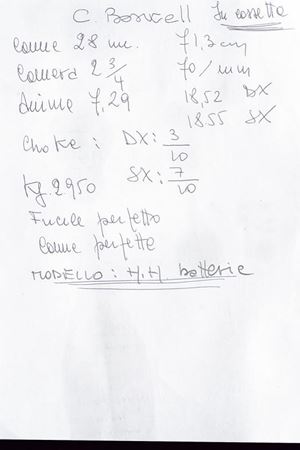 C. Boswell In cassetta
canne 28 in. 71,3 cm
Camera 2 3/4 70/mm
Anime 7,29 18,52 DX
18,55 SX
Choke: DX: 3/10
Kg. 2950 SX: 7/10
Fucile perfetto
Canne perfette
MODELLO: H.H. batterie